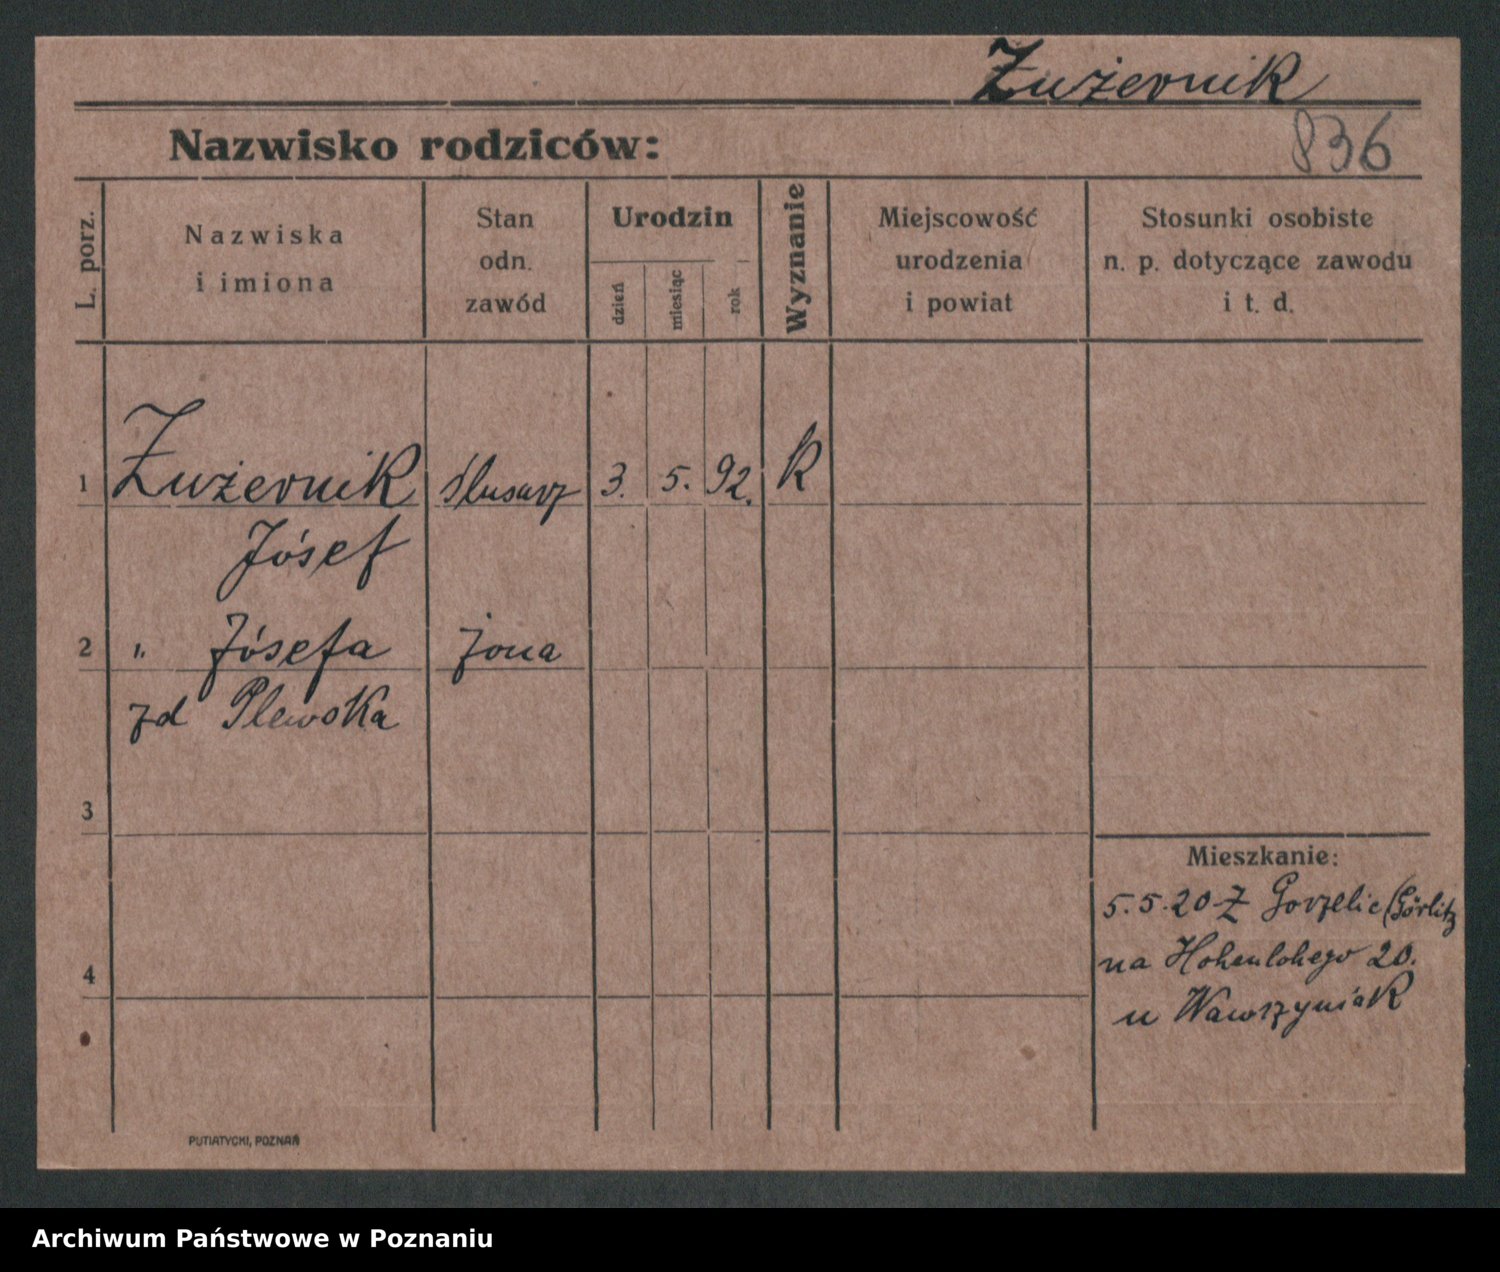 Zużernik
836
Nazwisko rodziców:
L. porz.
Nazwiska
i imiona
Stan
odn.
zawód
Urodzin
dzień
miesiąc
rok
Wyznanie
Miejscowość
urodzenia
i powiat
Stosunki osobiste
n. p. dotyczące zawodu
i t. d.
1 Zużernik ślusarz 3. 5. 92. k
Jósef
2 " Jósefa żona
zd Plewska
3
Mieszkanie:
5.5.20 Z Gorzelic (Görlitz
4 na Hohenlohego 20.
u Wawrzyniak
PUTIATYCKI, POZNAŃ
Archiwum Państwowe w Poznaniu